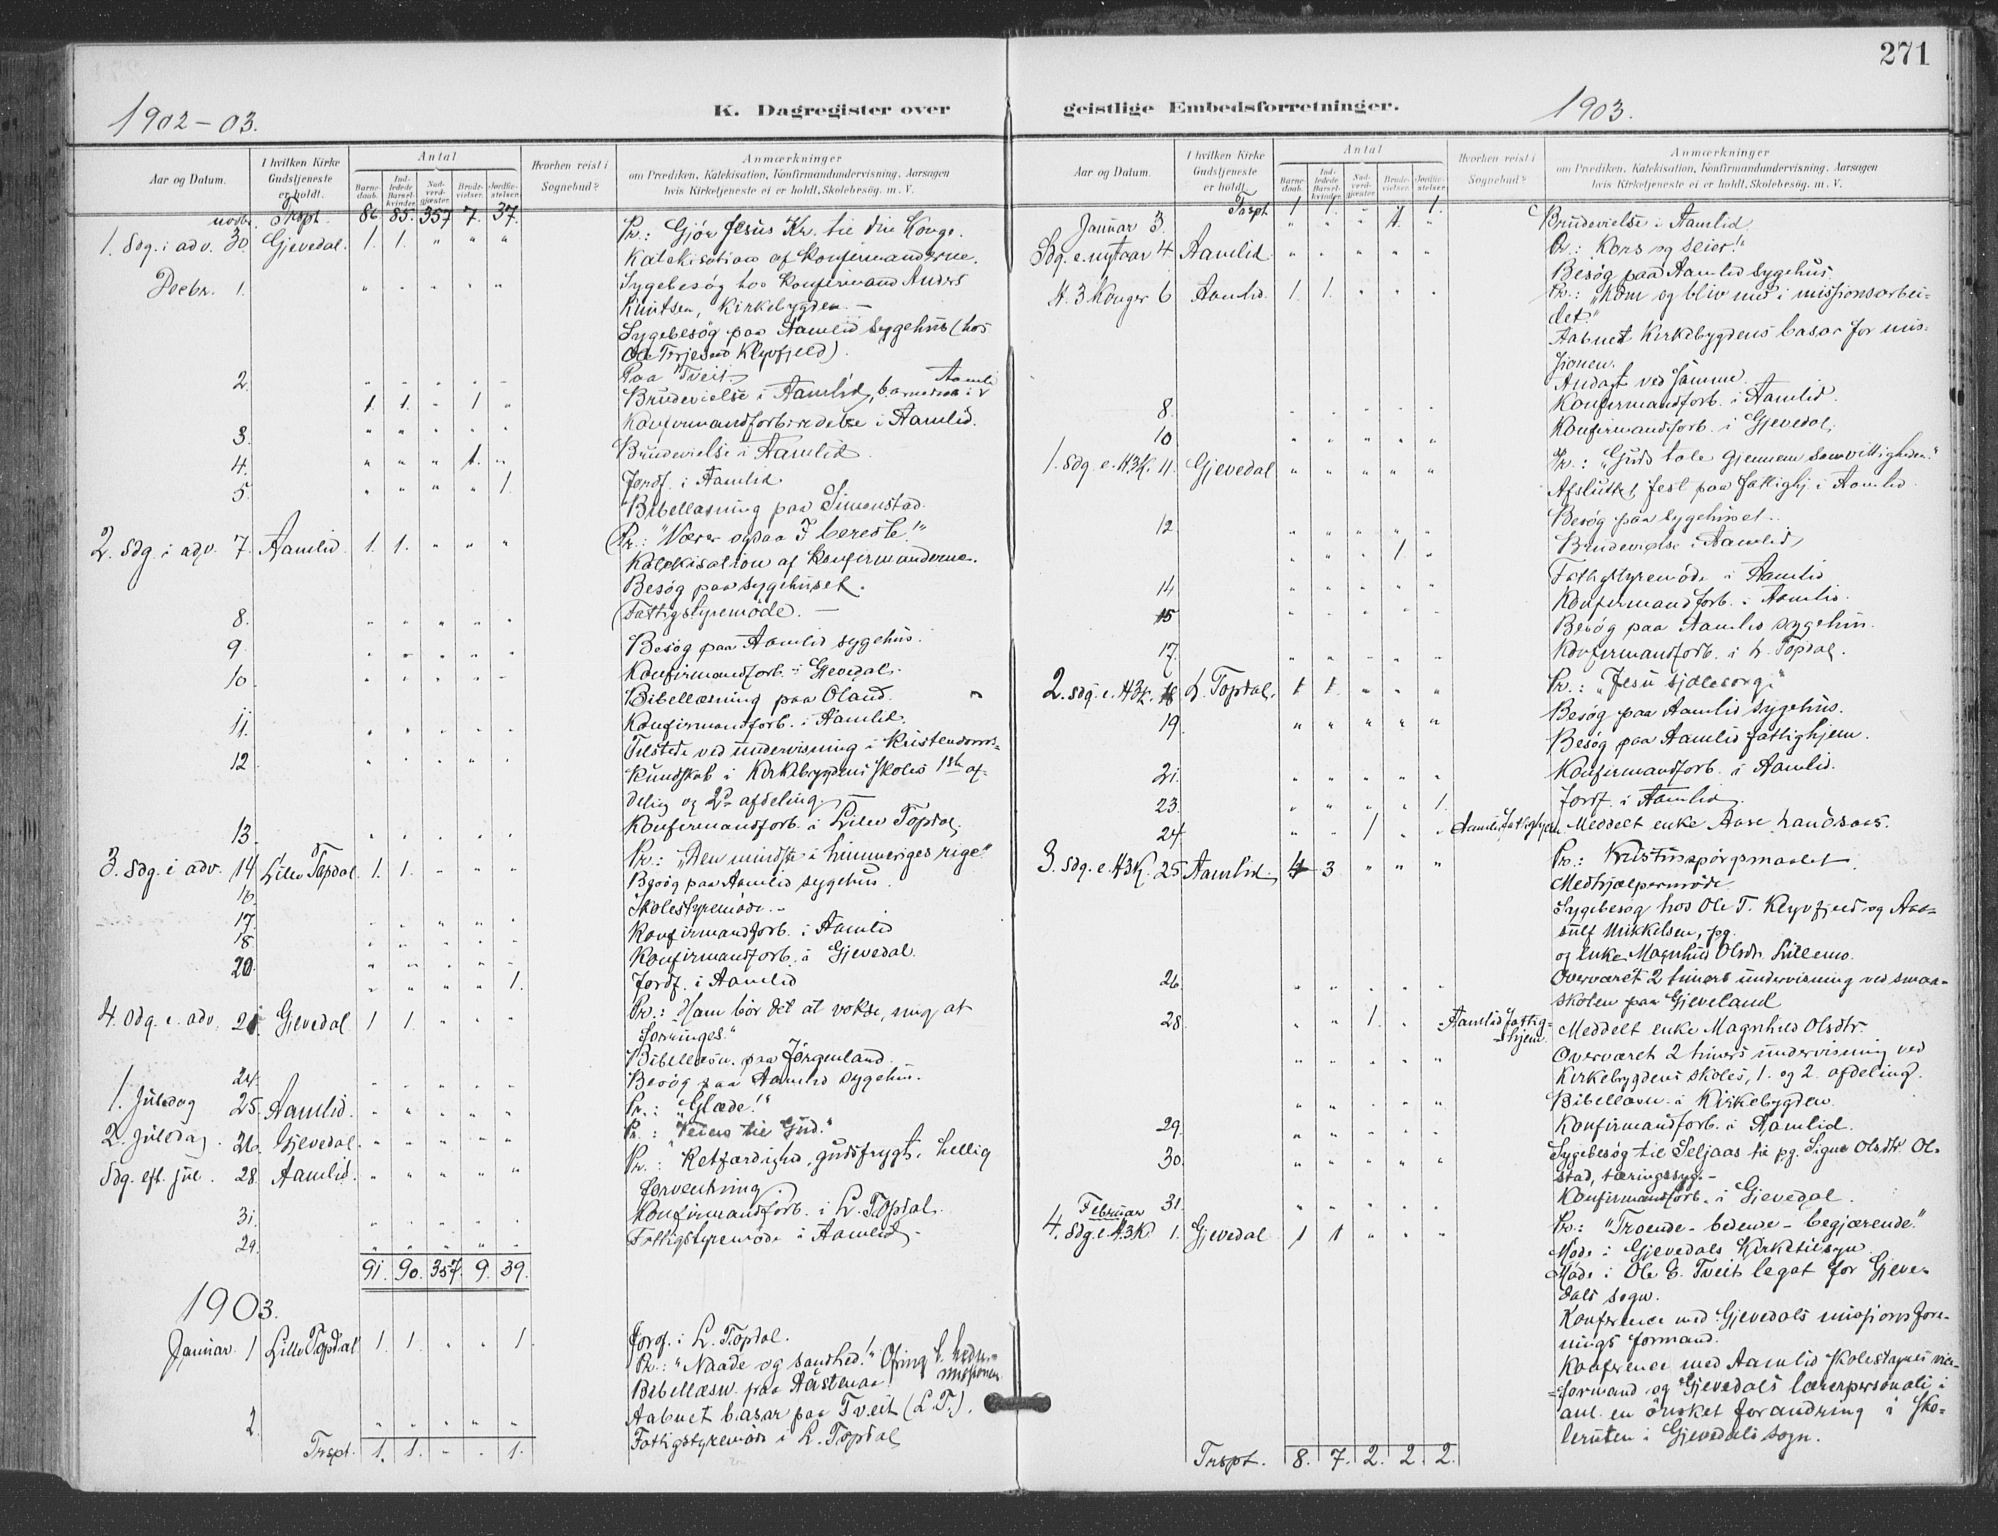 271
1902-03.
K. Dagregister over
geistlige Embedsforretninger.
1903.
Aar og Datum.
I hvilken Kirke Gudstjeneste er holdt.
Antal
Barnedaab.
Indledede Barselkvinder.
Nadverdgjæster.
Brudevielser.
Jordfæstelser.
Hvorhen reist i Sognebud?
Anmærkninger
om Prædiken, Katekisation, Konfirmandundervisning, Aarsagen
hvis Kirketjeneste ei er holdt, Skolebesøg m. V.
novb. Trspt. 86. 85. 357 7. 37.
1. Sdg. i adv. 30. Gjevedal. 1. 1. " " " Pr.: Gjør Jesus Kr. til din Konge.
Katekisation af Konfirmanderne.
Decbr. 1. " " " " " Sygebesøg hos Konfirmand Anders
Knutsen, Kirkebygden. —
Sygebesøg paa Aamlid sygehus (hos
Ole Terjesen Klyvfjeld).
2. " " " " " Paa Tveit.
1. 1. " 1 " Brudevielse i Aamlid, barnedaab i Aamli
3. " " " " " Konfirmandforberedelse i Aamlid.
4. " " " 1. " Brudevielse i Aamlid.
5. " " " " 1. Jordf. i Aamlid
Bibellæsning paa Simonstad.
2. Sdg. i adv. 7. Aamlid. 1. 1. " " " Pr.: "Værer ogsaa I beredte!"
Katekisation af Konfirmanderne.
Besøg paa sygehuset.
8. " " " " " Fattigstyremøde. —
9. " " " " " Besøg paa Aamlid sygehus.
10. " " " " " Konfirmandforb. i Gjevedal.
Bibellæsning paa Øland.
11. " " " " " Konfirmandforb. i Aamlid.
12 " " " " " Tilstede ved undervisning i Kristendoms-
kundskab i Kirkebygdens skoles 1ste af-
delig og 2den afdeling.
13. " " " " " Konfirmandforb. i Lille Topdal.
3. Sdg. i adv. 14 Lille Topdal. 1. 1. " " " Pr.: "Den mindste i himmeriges rige."
16. Besøg paa Aamlid sygehus.
17. " " " " " Skolestyremøde. —
18 " " " " " Konfirmandforb. i Aamlid
20. " " " " " Konfirmandforb. i Gjevedal.
" " " " 1. Jordf. i Aamlid
4. Sdg. i adv. 21. Gjevedal. 1 1. " " " Pr.: Ham bør det at vokse, mig at
forringes."
Bibellæsn. paa Jørgenland.
24. " " " " " Besøg paa Aamlid sygehus.
1. Juledag 25. Aamlid. " " " " " Pr.: "Glæde!"
2. Juledag. 26. Gjevedal. " " " " " Pr.: "Veien til Gud."
Sdg. eft. jul. 28. Aamlid. " " " " " Pr.: Retfærdighed, gudsfrygt, hellig
forventning.
31. " " " " " Konfirmandforb. i L. Topdal.
29. " " " " " Fattigstyremøde i Aamlid.
91. 90. 357. 9. 39.
1903.
Januar. 1 Lille Topdal 1. 1. " " 1. Jordf. i L. Topdal.
Pr.: "Naade og sandhed." Ofring t. hedn.-
missionen
Bibellæsn. paa Aastenaa.
Aabnet basar paa Tveit (L.T.).
2. " " " " " Fattigstyremøde i L. Topdal
Trspt. 1. 1. - - 1.
Aar og Datum.
I hvilken Kirke Gudstjeneste er holdt.
Antal
Barnedaab.
Indledede Barselkvinder.
Nadverdgjæster.
Brudevielser.
Jordfæstelser.
Hvorhen reist i Sognebud?
Anmærkninger
om Prædiken, Katekisation, Konfirmandundervisning, Aarsagen
hvis Kirketjeneste ei er holdt, Skolebesøg m. V.
Trspt 1. 1. - - 1.
Januar 3. " " " 1. " Brudevielse i Aamlid
Sdg. e. nytaar 4 Aamlid. " " " " " Pr.: Kors og seier!"
Besøg paa Aamlid sygehus.
H. 3 Konger 6 Aamlid. 1. 1. " " " Pr.: "Kom og bliv med i missionsarbei-
det."
Aabnet Kirkebygdens basar for mis-
sionen.
Andagt ved samme.
8. " " " " " Konfirmandforb. i Aamlid.
10 " " " " " Konfirmandforb. i Gjevedal.
1. Sdg. e. H3K. 11. Gjevedal " " " " " Pr.: "Guds tale gjennem samvittigheden."
Afsluttet fest paa fattighj. i Aamlid.
12 " " " " " Besøg paa sygehuset.
" " " 1 " Brudevielse i Aamlid
14 " " " " " Fattigstyremøde i Aamlid
15 " " " " " Konfirmandforb. i Aamlid.
Besøg paa Aamlid sygehus.
17. " " " " " Konfirmandforb. i L. Topdal.
2. Sdg. e. H3K. 18 L. Topdal. 1 1. " " " Pr.: "Jesu sjælesorg."
19. " " " " " Besøg paa Aamlid sygehus.
Besøg paa Aamlid fattighjem.
21. " " " " " Konfirmandforb. i Aamlid.
23. " " " " 1. Jordf. i Aamlid.
24. " " 1 " " Aamlid fattighjem Meddelt enke Aase
3. Sdg. e. H3K. 25 Aamlid. 4 3 " " " Pr.: Kristusspørgsmaalet
Medhjælpermøde.
Sygebesøg hos Ole T. Klyvfjeld og Aas-
sulf Mikkelsen, pg.
og enke Magnhild Olsdr. Lillemo.
26. " " " " " Overværet 2 timers undervisning ved smaa-
skolen paa Gjeveland
28. " " 1. " " Aamlid fattig-
hjem. Meddelt enke Magnhild Olsdtr.
" " " " " Overværet 2 timers undervisning ved
Kirkebygdens skoles, 1. og 2. afdeling.
" " " " " Bibellæsn. i Kirkebygden.
29. " " " " " Konfirmandforb. i Aamlid.
30. " " " " " Sygebesøg til Seljaas til pg. Signe Olsdtr. Ol-
stad, tæringssyg. -
31. " " " " " Konfirmandforb. i Gjevedal.
Februar
4. Sdg. e. H3K 1. Gjevedal 1 1 " " " Pr.: "Troende - bedende - begjærende."
Møde i Gjevedals Kirketilsyn.
Møde i Ole E. Tveits legat for Gjeve-
dals sogn.
Konference med Gjevedals missionsfore-
nings formand.
Konference med Aamlid skolestyres vice-
formand og Gjevedals lærerpersonale i
anl. en ønsket forandring i sko-
leruten i Gjevedals sogn.
Trspt. 8. 7. 2. 2. 2.